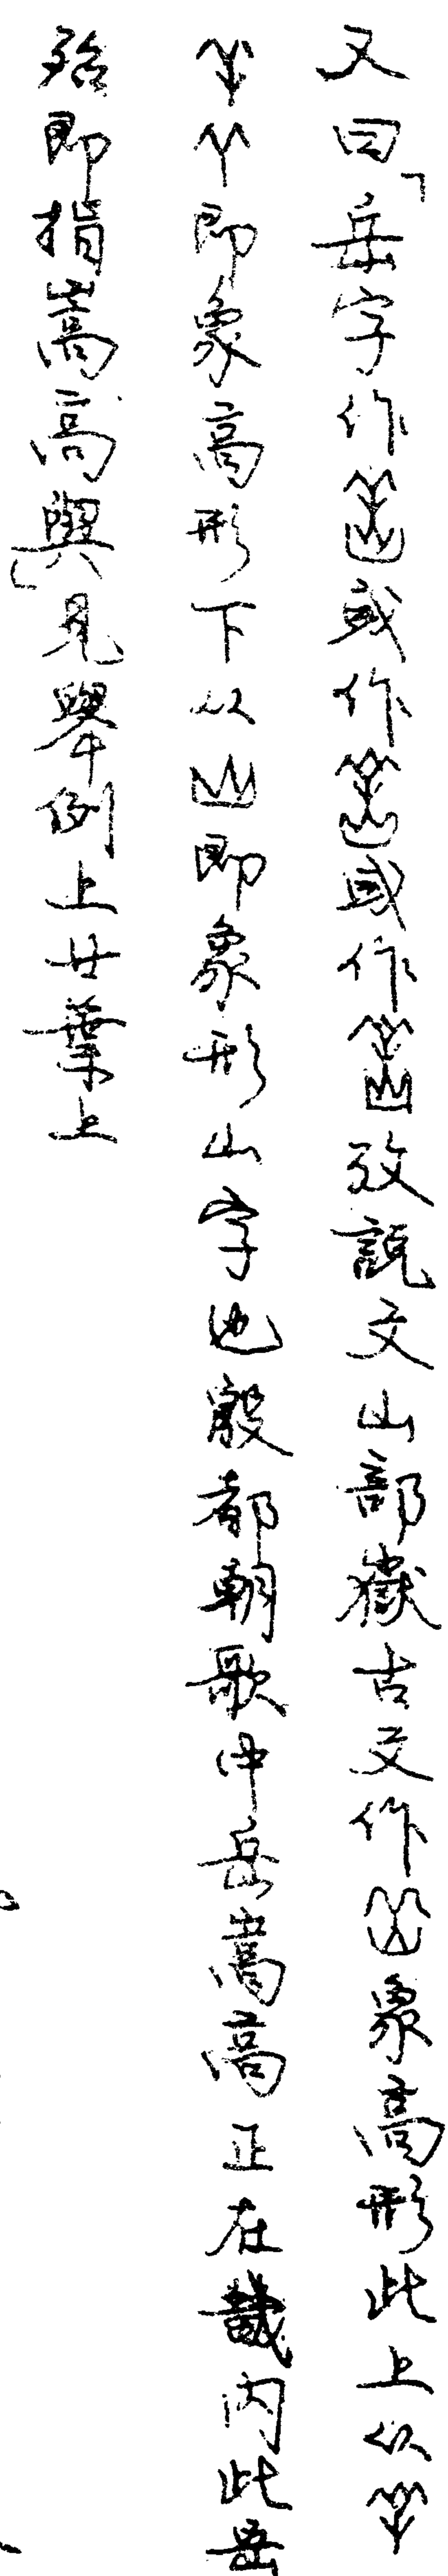 又曰「岳字作或作或作攷說文山部嶽古文作象高形此上从
即象高形下从即象形山字也殷都朝歌中岳嵩高正在畿内此岳
殆即指嵩高與」見舉例上廿葉上